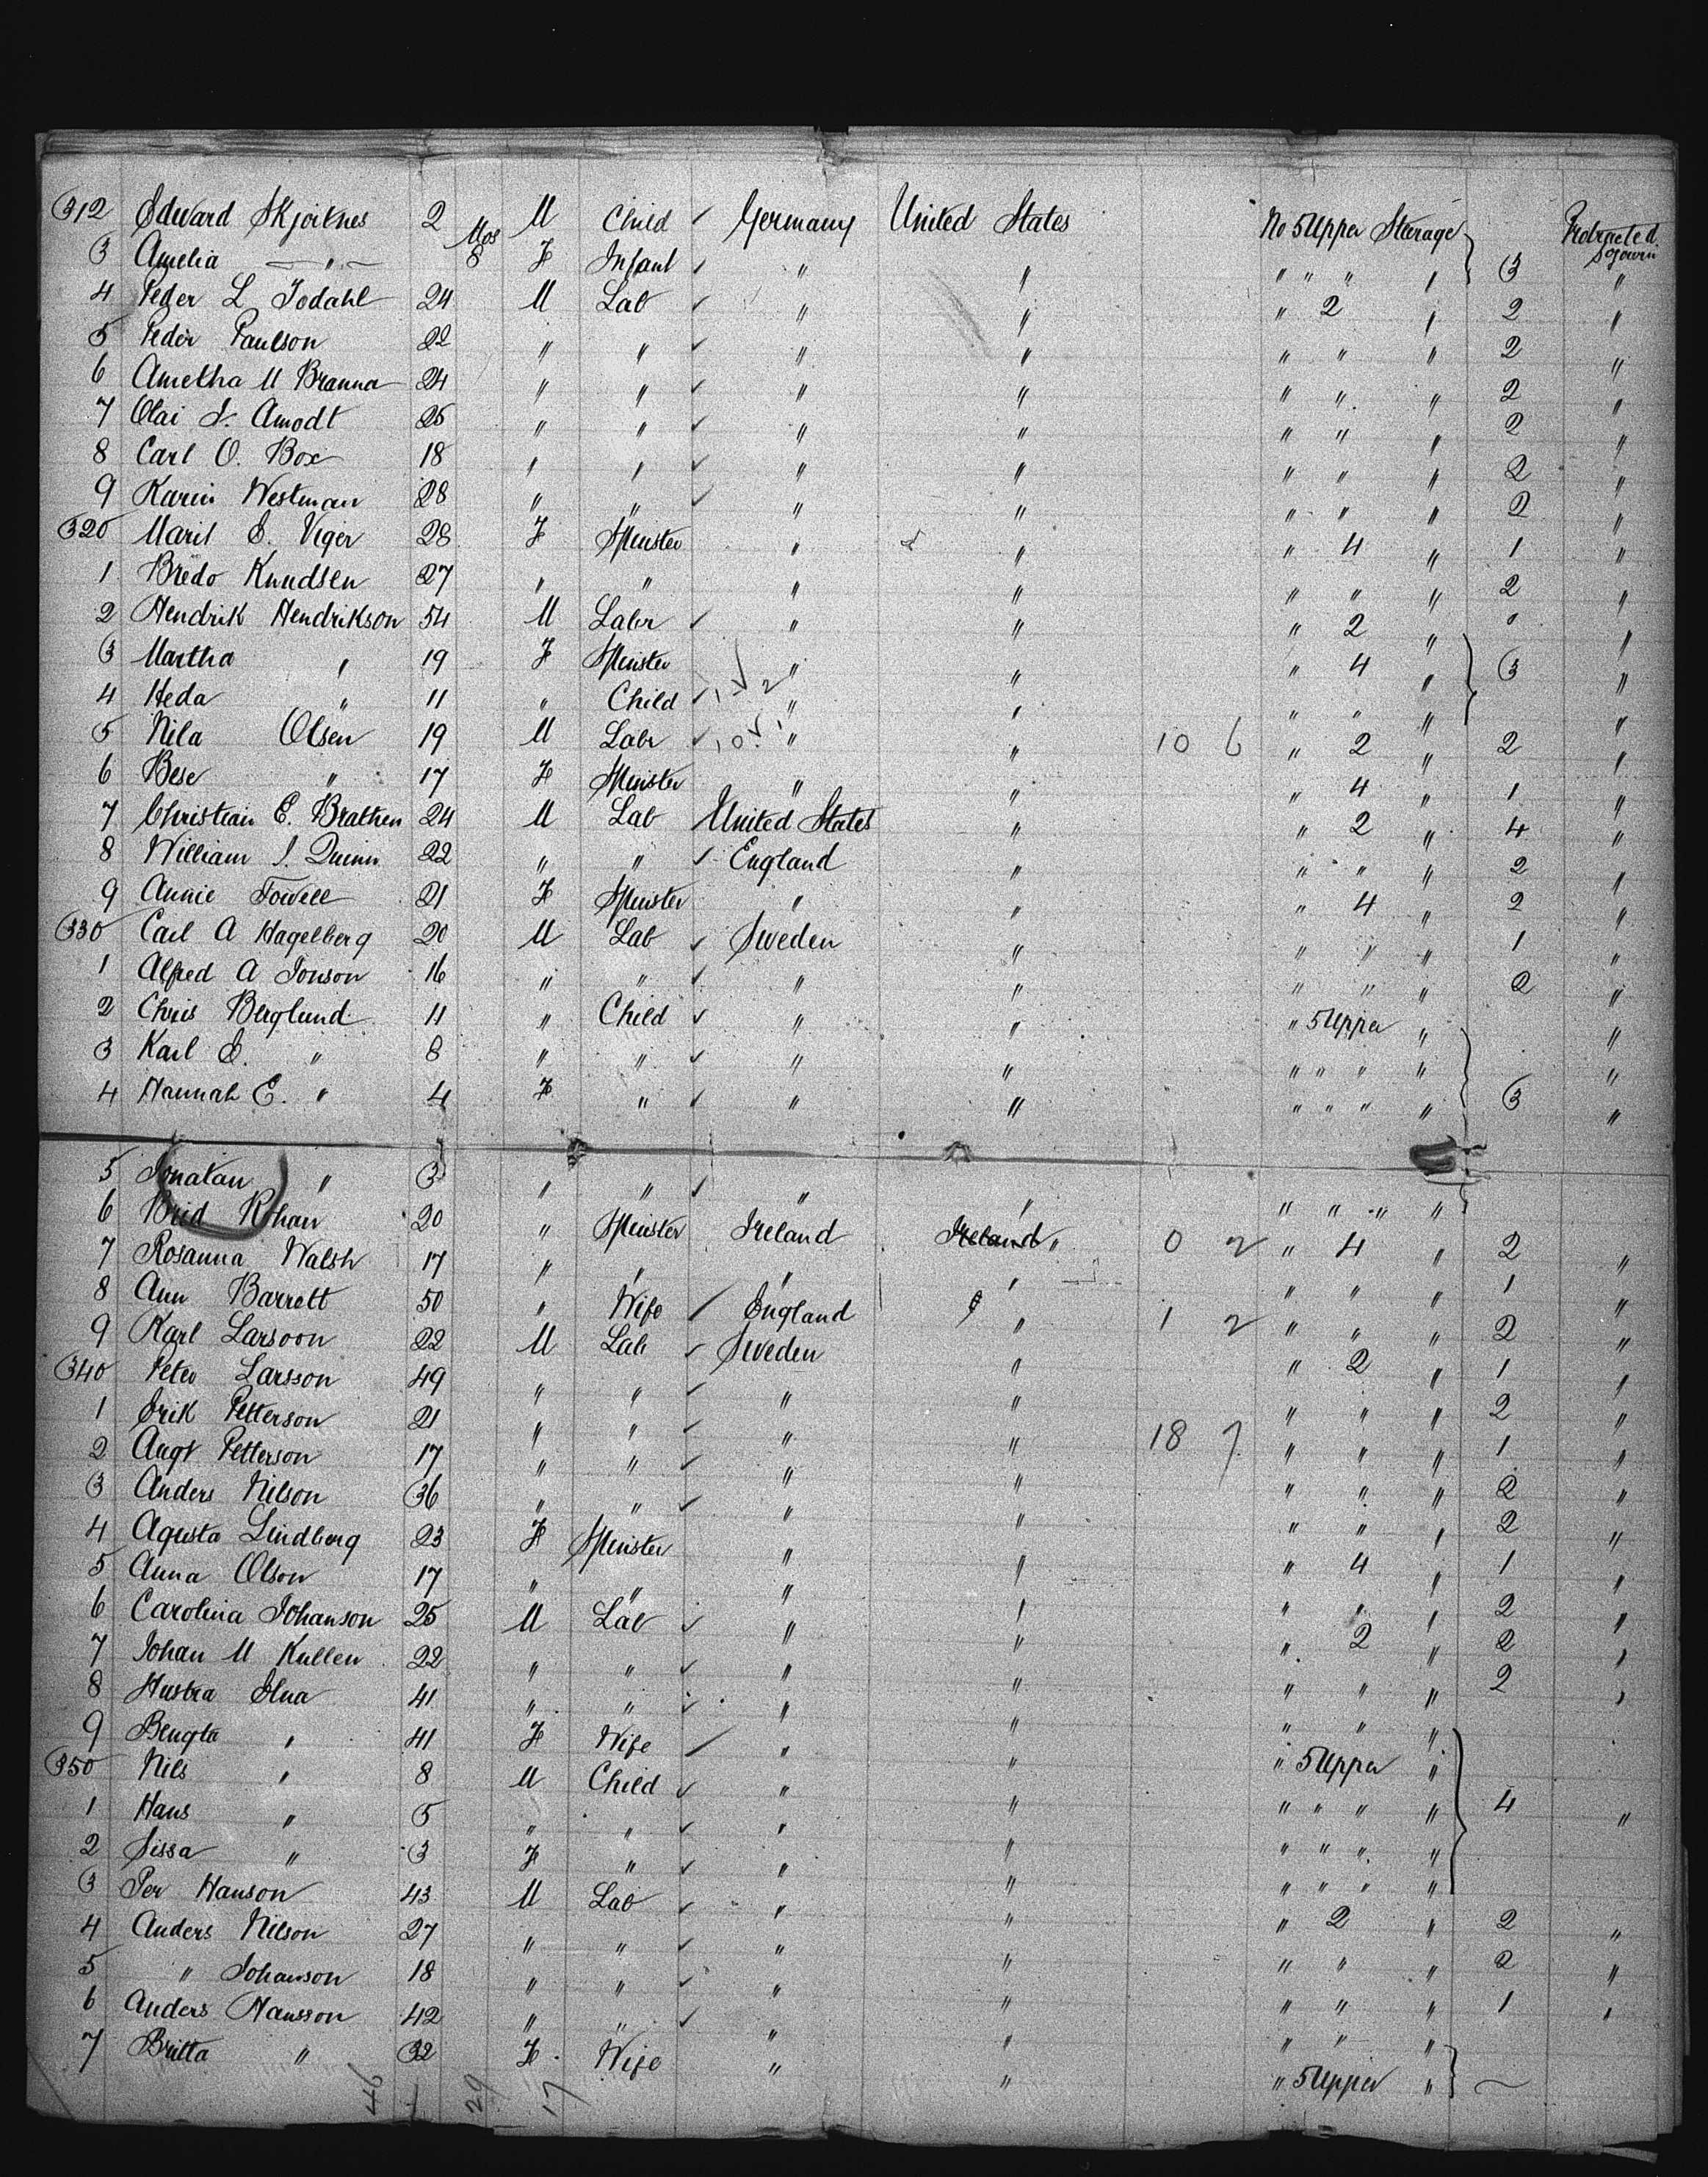 312 Edward Skjorknes 2 M Child ✓ Germany United States No 5 Upper Steerage Protracted Sojourn
3 Amelia — " — Mos 8 F Infant ✓ " " " " " " 3 "
4 Peder L Todahl 24 M Lab ✓ " " " 2 " 2 "
5 Peder Paulson 22 " " ✓ " " " " " 2 "
6 Ametha M Branna 24 " " ✓ " " " " " 2 "
7 Olai J. Amodt 25 " " ✓ " " " " " 2 "
8 Carl O. Box 18 " " ✓ " " " " " 2 "
9 Karin Westman 28 " " ✓ " " " " " 2 "
320 Marit E. Viger 28 F Spinster " " " 4 " 1 "
1 Bredo Knudsen 27 " " " " " " " 2 "
2 Hendrik Hendrikson 54 M Labr ✓ " " " 2 " " "
3 Martha " 19 F Spinster " " " 4 " 3 "
4 Heda " 11 " Child ✓ " " " " " "
5 Nila Olsen 19 M Labr ✓ " " 10 6 " 2 " 2 "
6 Bese " 17 F Spinster " " " 4 " 1 "
7 Christian E. Brathen 24 M Lab United States " " 2 " 4 "
8 William J. Quinn 22 " " ✓ England " " " " 2 "
9 Annie Towell 21 F Spinster " " " 4 " 2 "
330 Carl A Hagelberg 20 M Lab ✓ Sweden " " " " 1 "
1 Alfred A Jonson 16 " " ✓ " " " " " 2 "
2 Chris Berglund 11 " Child ✓ " " " 5 Upper " "
3 Karl E. " 8 " " ✓ " " " " " " "
4 Hannah E. " 4 F " ✓ " " " " " " 3 "
5 Jonatan " 3 " " ✓ " " " " " "
6 Brid Rohan 20 " Spinster Ireland Ireland " 0 2 " 4 " 2 "
7 Rosanna Walsh 17 " " " " " " " 1 "
8 Ann Barrett 50 " Wife ✓ England " 1 2 " " " 2 "
9 Karl Larsoon 22 M Lab ✓ Sweden " " 2 " 1 "
340 Peter Larsson 49 " " ✓ " " " " " 2 "
1 Erik Petterson 21 " " ✓ " " 18 7 " " " 1 "
2 Augt Petterson 17 " " ✓ " " " " " 2 "
3 Anders Nilson 36 " " ✓ " " " " " 2 "
4 Agusta Lindberg 23 F Spinster " " " 4 " 1 "
5 Anna Olson 17 " " " " " " " 2 "
6 Carolina Johanson 25 M Lab ✓ " " " 2 " 2 "
7 Johan M Kullen 22 " " ✓ " " " " " 2 "
8 Hustra Elna 41 " " ✓ " " " " "
9 Bengta " 41 F Wife ✓ " " " 5 Upper "
350 Nils " 8 M Child ✓ " " " " " " 4 "
1 Hans " 5 " " ✓ " " " " " "
2 Sissa " 3 F " ✓ " " " " " "
3 Per Hanson 43 M Lab ✓ " " " 2 " 2 "
4 Anders Nilson 27 " " ✓ " " " " " 2 "
5 " Johanson 18 " " ✓ " " " " " 1 "
6 Anders Hansson 42 " " ✓ " " " " "
7 Britta " 32 F Wife " " " 5 Upper "
46 29 17